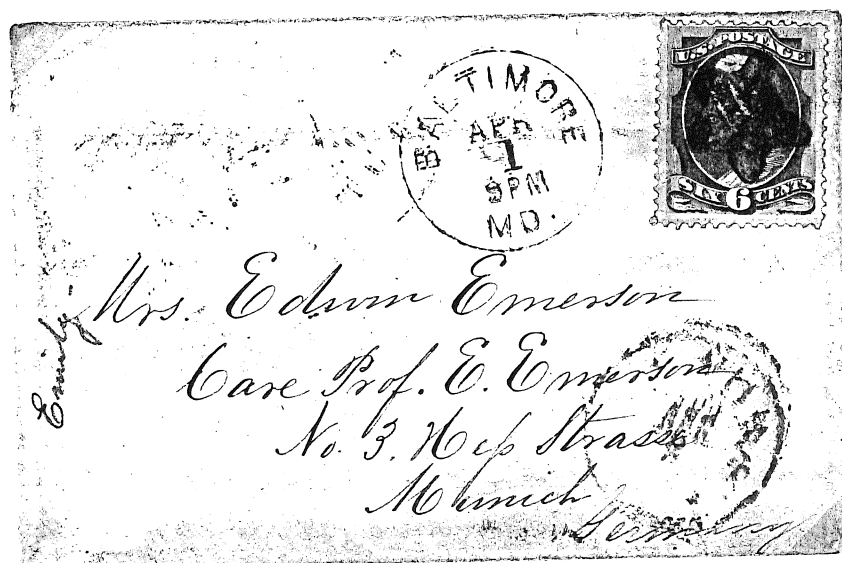 U.S. POSTAGE
SIX 6 CENTS
BALTIMORE
APR
1
9PM
MD.
Mrs. Edwin Emerson
Care Prof. E. Emerson
No. 3. Hess Strasse
Munich
Germany
Emily